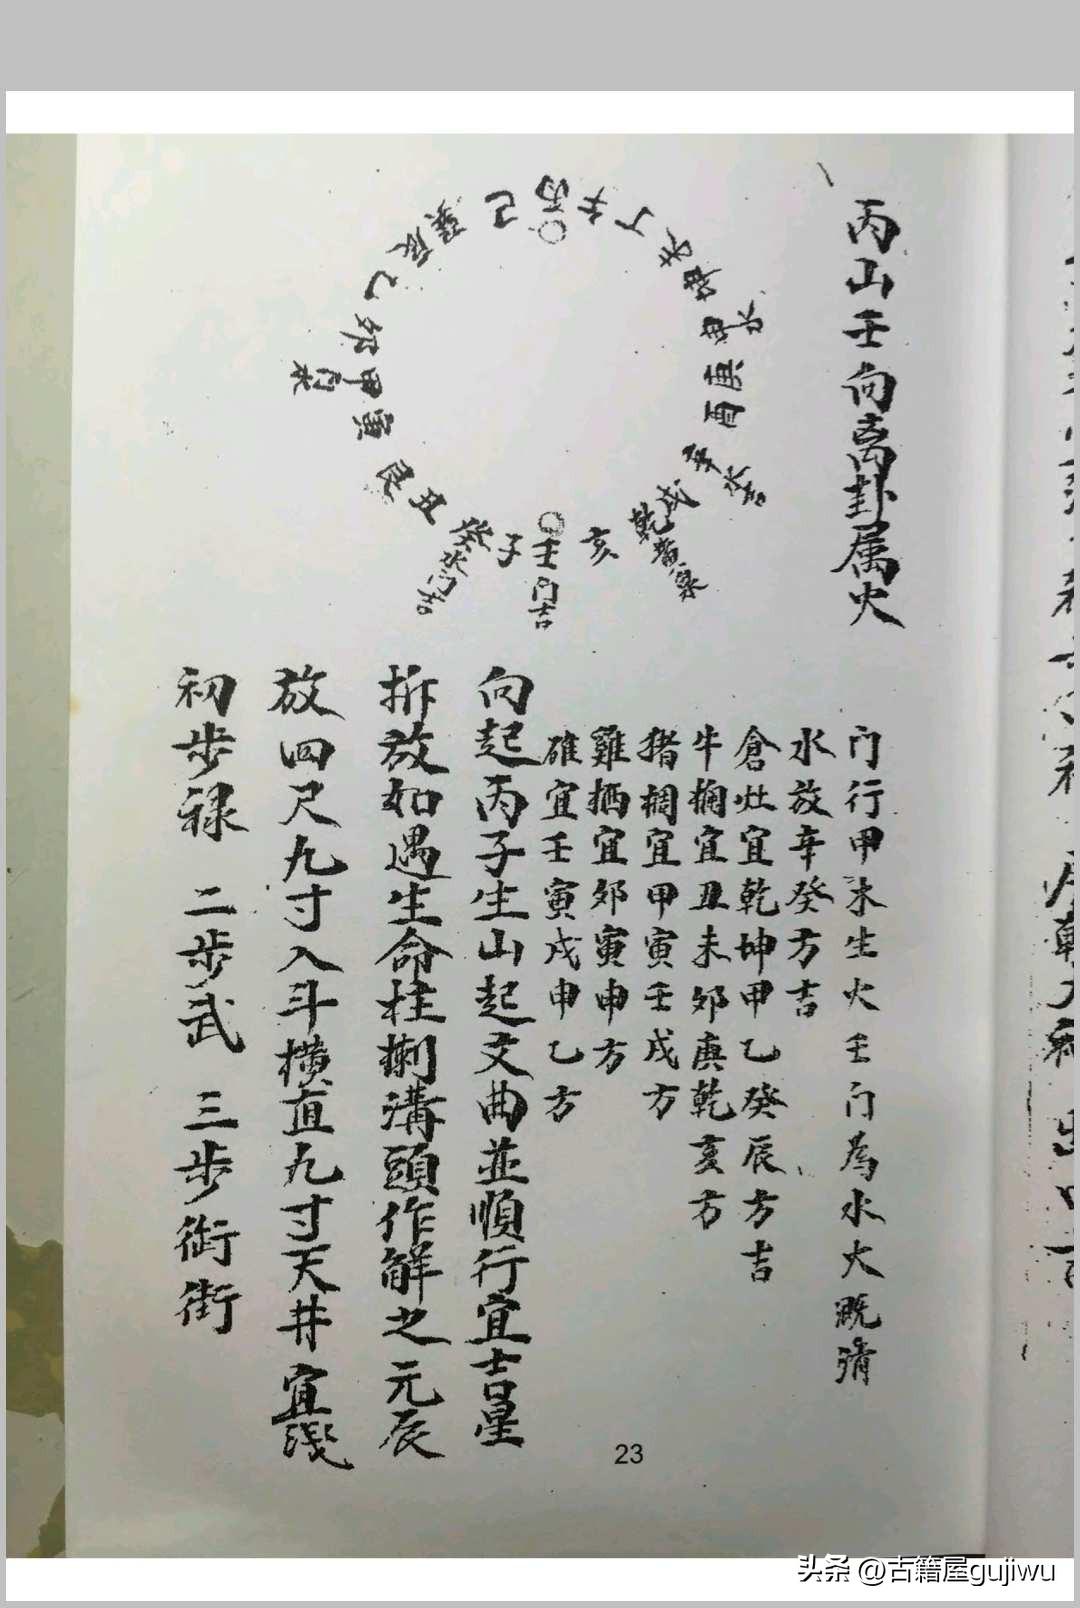 丙山壬向离卦属火
丙 午 丁 未 坤 申 水 庚 酉 辛 水吉 戌 乾 黄泉 亥 壬 门吉 子 癸 水门吉 丑 艮 寅 甲 门水 卯 乙 辰 巽 巳
门行甲木生火壬门為水火溉濟
水放辛癸方吉
倉灶宜乾坤甲乙癸辰方吉
牛椆宜丑未卯庚乾亥方
猪椆宜甲寅壬戌方
雞栖宜卯寅申方
碓宜壬寅戌申乙方
向起丙子生山起文曲並順行宜吉星
拆放如遇生命柱捌溝頭作解之元辰
放四尺九寸入斗横直九寸天井宜浅
初步禄 二步武 三步衙街
23
头条 @古籍屋gujiwu